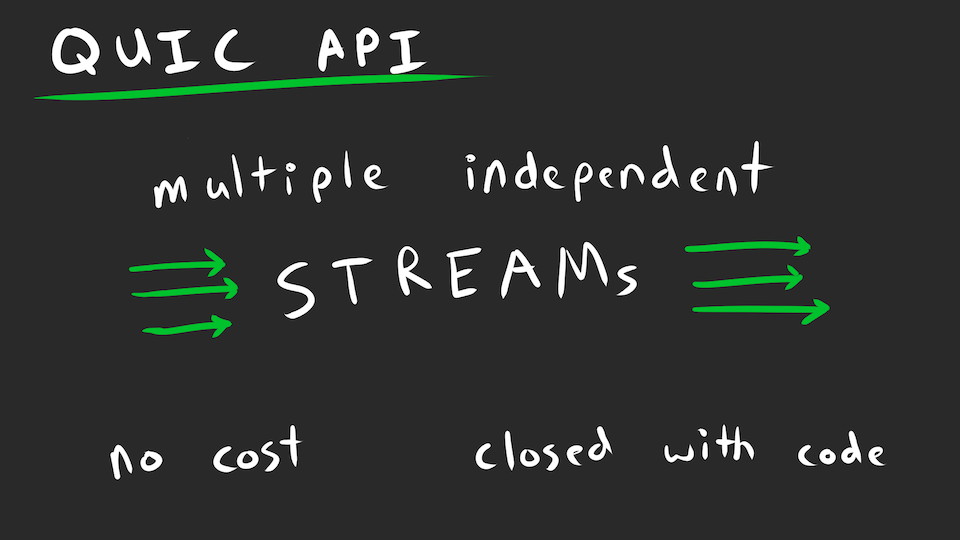 QUIC API
multiple independent
STREAMs
no cost closed with code